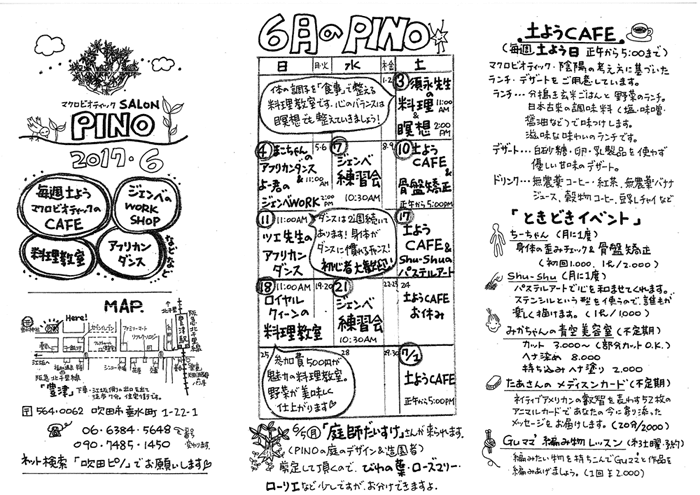 マクロビオティック SALON
PINO
2017・6
毎週土よう
マクロビオティックの
CAFE
ジェンベの
WORK
SHOP
料理教室
アフリカン
ダンス
MAP.
Here!
阪急北千里線
"豊津"下車
〒564-0062 吹田市垂水町1-22-1
☎ 06-6384-5648
090-7485-1450
ネット検索「吹田ピノ」でお願いします
6月のPINO
日 月火 水 木金 土
体の調子を「食事」で整える
料理教室です。心のバランスは
瞑想で整えていきましょう!
1・2
③須永先生
の
料理 11:00AM
&
瞑想 2:00PM
④まこちゃんの
アフリカンダンス
& 11:00AM
よー君の
ジェンベWORK 2:00PM
5・6
⑦
ジェンベ
練習会
10:30AM
8・9
⑩土よう
CAFE
&
骨盤矯正
正午から5:00PM
⑪ 11:00AM
ツエ先生の
アフリカン
ダンス
ダンスは2週間続いて
あります!身体が
ダンスに慣れるチャンス!
初心者大歓迎
⑰
土よう
CAFE &
Shu-Shuの
パステルアート
⑱ 11:00AM
ロイヤル
クィーンの
料理教室
19・20
㉑
ジェンベ
練習会
10:30AM
22・23
24
土ようCAFE
お休み
25
参加費500円が
魅力の料理教室。
野菜が美味しく
仕上がります
28
29・30
7/1
土ようCAFE
正午から5:00PM
6/5(月)「庭師だいすけ」さんが来られます。
(PINOの庭のデザイン&造園者)
剪定して頂くので、びわの葉・ローズマリー・
ローリエなど少しですが、お分けできますよ。
土ようCAFE
(毎週土よう日 正午から5:00まで)
マクロビオティック・陰陽の考え方に基づいた
ランチ・デザートをご用意しています。
ランチ・・・分搗き玄米ごはんと野菜のランチ。
日本古来の調味料(塩・味噌・
醤油など)で味つけします。
滋味な味わいのランチです。
デザート・・・白砂糖・卵・乳製品を使わず
優しい甘味のデザート。
ドリンク・・・無農薬コーヒー・紅茶、無農薬バナナ
ジュース、穀物コーヒー、豆乳チャイなど
「ときどきイベント」
ちーちゃん(月に1度)
身体の歪みチェック&骨盤矯正
(初回1.000、1名/2.000)
Shu-shu(月に1度)
パステルアートで心を和ませてくれます。
ステンシルという型を使うので、誰もが
楽しく描けます。(1名/1,000)
みかちゃんの青空美容室(不定期)
カット 3.000〜(部分カットO.K.)
ヘナ染め 8.000
持ち込みヘナ塗り 2.000
たあさんのメディスンカード(不定期)
ネイティブアメリカンの叡智を表わす52枚の
アニマルカードであなたの今に寄り添った
メッセージをお届けします。(20分/2000)
Guママ 編み物レッスン(木土曜・予約)
編みたい物を持ちこんでGuママと作品
を編みあげましょう。(1回¥2,000)